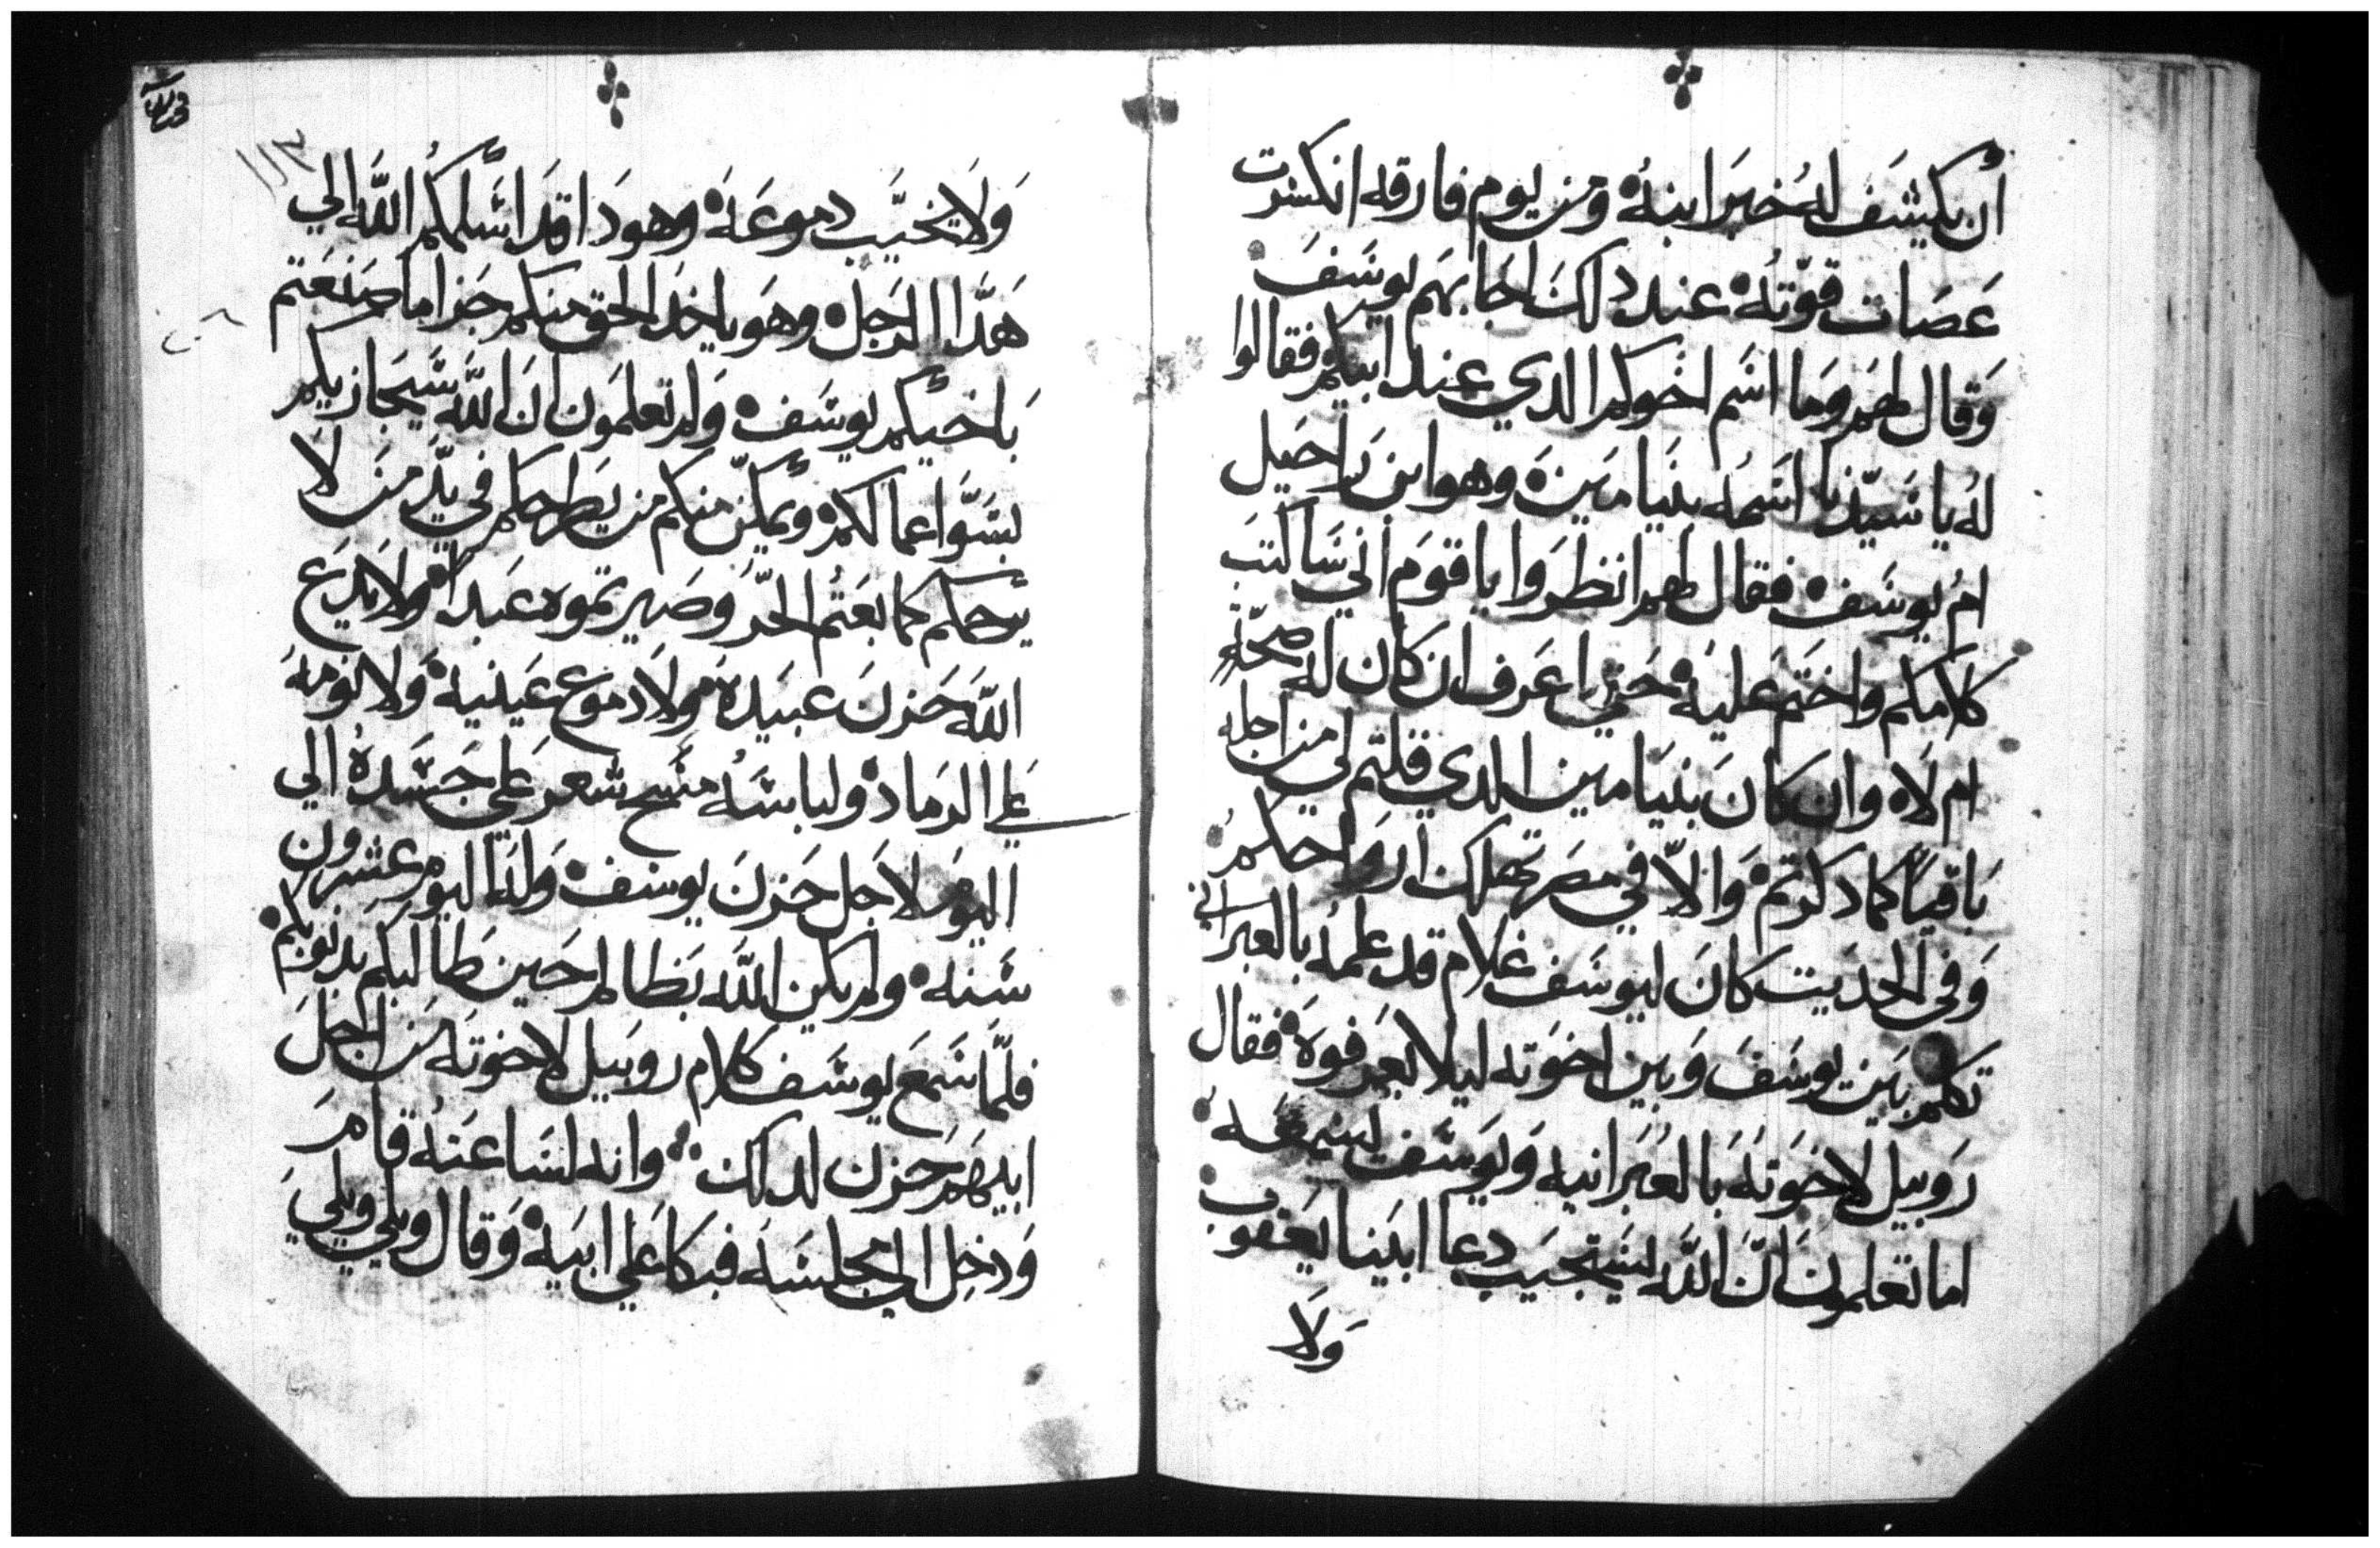 أن يكشف له خبر ابنه ومن يوم فارقه انكسرت
عصات قوّته عند دلك اجابهم يوسف
وقال لهم وما اسم اخوكم الدي عند ابيكم فقالوا
له يا سيّدنا اسمه بنيامين وهو ابن راحيل
ام يوسف فقال لهم انظروا يا قوم اني ساكتب
كلامكم واختم عليه حتي اعرف ان كان له صحّه
ام لاه وان كان بنيامين الدي قلتم لي من اجله
باقيا كما دكرتم والاّ في مصر تهلك ارواحكم
وفي الحديت كان ليوسف غلام قد علمه بالعبراني
تكلم بين يوسف وبين اخوته ليلا يعرفوه فقال
روبيل لاخوته بالعبرانيه ويوسف يسمعه
اما تعلمون انّ اللّه يستجيب دعا ابينا يعقوب
ولا
١١٣
ولا يخيّب دموعه وهودا قد اسلمكم اللّه الي
هدا الرجل وهو ياخد الحق منكم جزا ما صنعتم
باخيكم يوسف ولم تعلمون ان اللّه سيجازيكم
بسوّا عمالكم ويمكّن منكم من يطرحكم في يدّ من لا
يرحمكم كما بعتم الحرّ وصيرتموه عبداً ولا يدع
اللّه حزن عبيده ولا دموع عينيه ولا نومه
علي الرماد ولباسه مسح شعر علي جسده الي
اليوم لاجل حزن يوسف وله اليوم عشرون
سنه ولم يكن اللّه بظالم حين طالبكم بدنوبكم
فلمّا سمع يوسف كلام روبيل لاخوته من اجل
ابيهم حزن لدلك وانه لساعته قام
ودخل الي مجلسه فبكا علي ابيه وقال ويلي ويلي